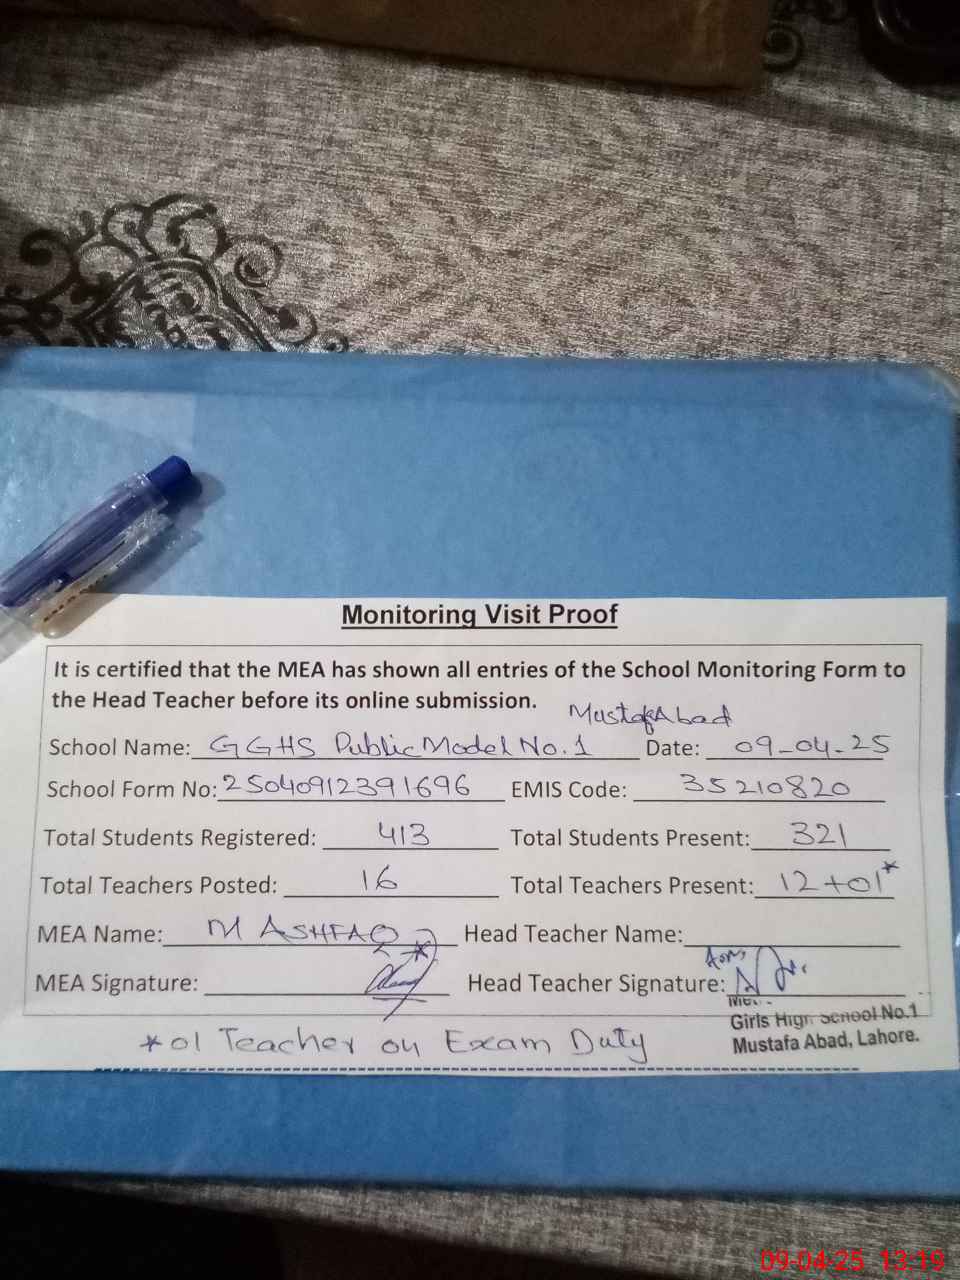 Monitoring Visit Proof
It is certified that the MEA has shown all entries of the School Monitoring Form to
the Head Teacher before its online submission.
MustafaAbad
School Name: GGHS Public Model No.1 Date: 09-04-25
School Form No: 25040912391696 EMIS Code: 35210820
Total Students Registered: 413 Total Students Present: 321
Total Teachers Posted: 16 Total Teachers Present: 12+01*
MEA Name: M ASHFAQ Head Teacher Name:
MEA Signature: Head Teacher Signature:
Girls High School No.1
Mustafa Abad, Lahore.
*01 Teacher on Exam Duty
09-04-25 13:19